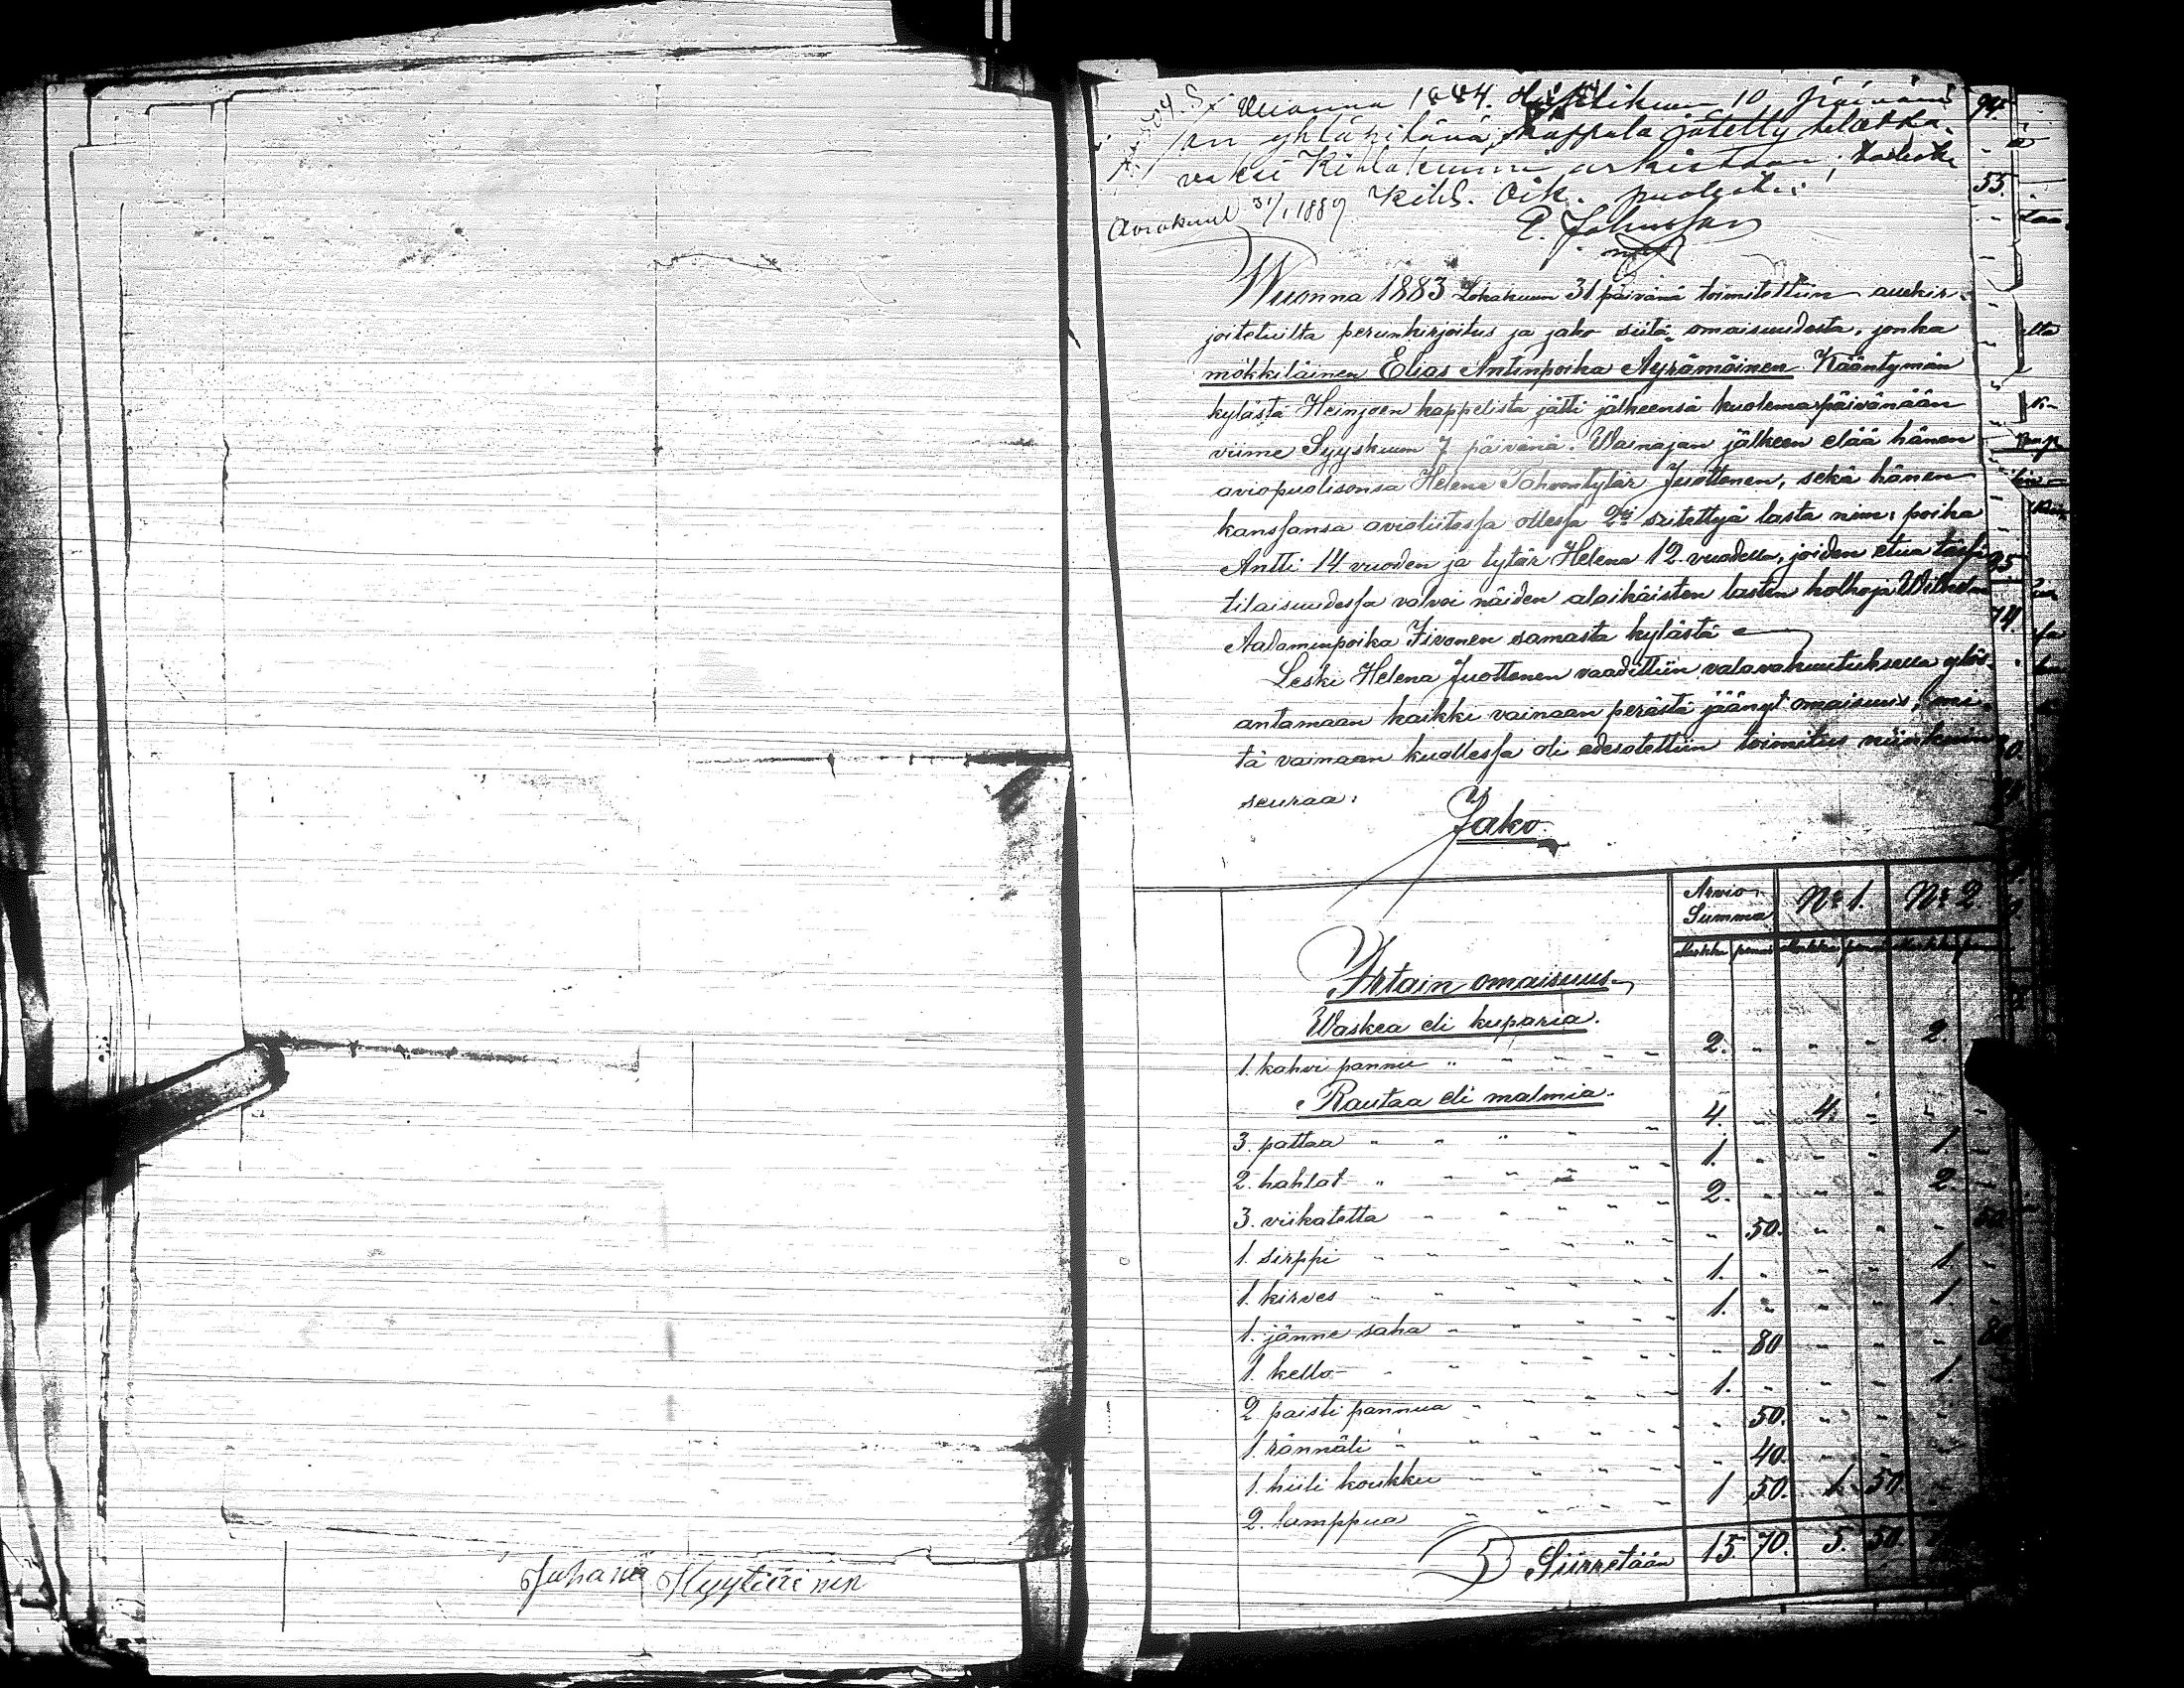 Vuonna 1884. Huhtikuun 10 päivänä
on yhtäpitävä kappale jätetty talletta-
vaksi Kihlakunnan arkistoon; todistaa
Kihl. Oik. puolesta:
E. Johnsson
Wuonna 1883 Lokakuun 31 päivänä toimitettiin allekir-
joitetuilta perunkirjoitus ja jako siitä omaisuudesta, jonka
mökkiläinen Elias Antinpoika Äyrämöinen Kääntymän
kylästä Heinjoen kappelista jätti jälkeensä kuolemapäivänään
viime Syyskuun 7 päivänä. Wainajan jälkeen elää hänen
aviopuolisonsa Helena Tahvontytär Juottonen, sekä hänen
kanssansa avioliitossa ollessa 2si siitettyä lasta nim: poika
Antti 14 vuoden ja tytär Helena 12 vuodella, joiden etua tässä
tilaisuudessa valvoi näiden alaikäisten lasten holhoja Wilhelm
Aadaminpoika Iivonen samasta kylästä
Leski Helena Juottonen vaadittiin valavakuutuksella ylös-
antamaan kaikki vainaan perästä jäänyt omaisuus, mi-
tä vainaan kuollessa oli edesotettiin toimitus niinkuin
seuraa:
Jako.
Arvio Summa No 1. No 2.
Markka penni Markka penni Markka penni
Irtain omaisuus.
Waskea eli kuparia.
1. kahvi pannu 2. - - - 2.
Rautaa eli malmia.
3. pattaa 4. - 4. - - -
2. hahlat 1. - - - 1. -
3. viikatetta 2. - - - 2. -
1. sirppi - 50. - - - 50
1. kirves 1. - - - 1. -
1. jänne saha 1. - - - 1. -
1. kello - 80 - - - 80
2 paisti pannua 1. - - - 1.
1. rännäli - 50. - - -
1. hiili koukku - 40. - - -
2. lamppua 1 50. 1. 50.
Siirretään 15. 70. 5. 50.
Juhana Hyytiäinen